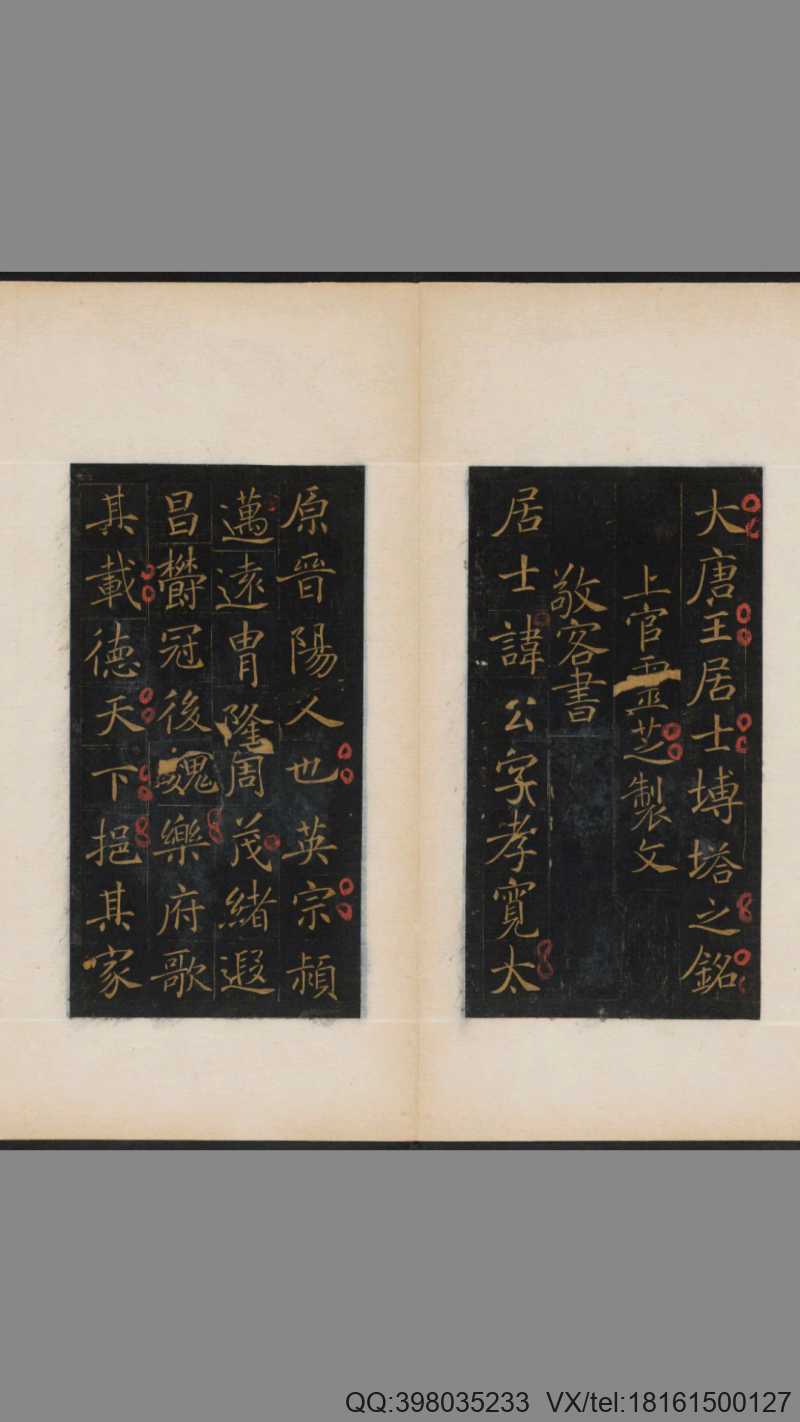 大唐王居士塼塔之銘
上官靈芝製文
敬客書
居士諱公字孝寛太
原晉陽人也英宗頴
邁遠冑隆周茂緒遐
昌欝冠後魏樂府歌
其載德天下挹其家
QQ:398035233 VX/tel:18161500127